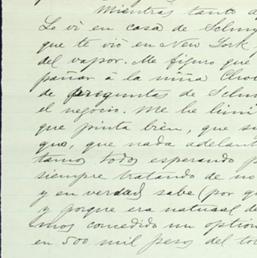 Mientras tanto
Lo vi en casa de
que te vió en New York
del vapor. Me figuro que
pañar á la niña
de preguntas de
el negocio. Me limi
que pinta bien, que su
que, que nada adelant
tamos todos esperando
siempre tratando de no
y en verdad, sabe (por qu
y porque era natural d
mos concedido un option
en 500 mil pesos del to